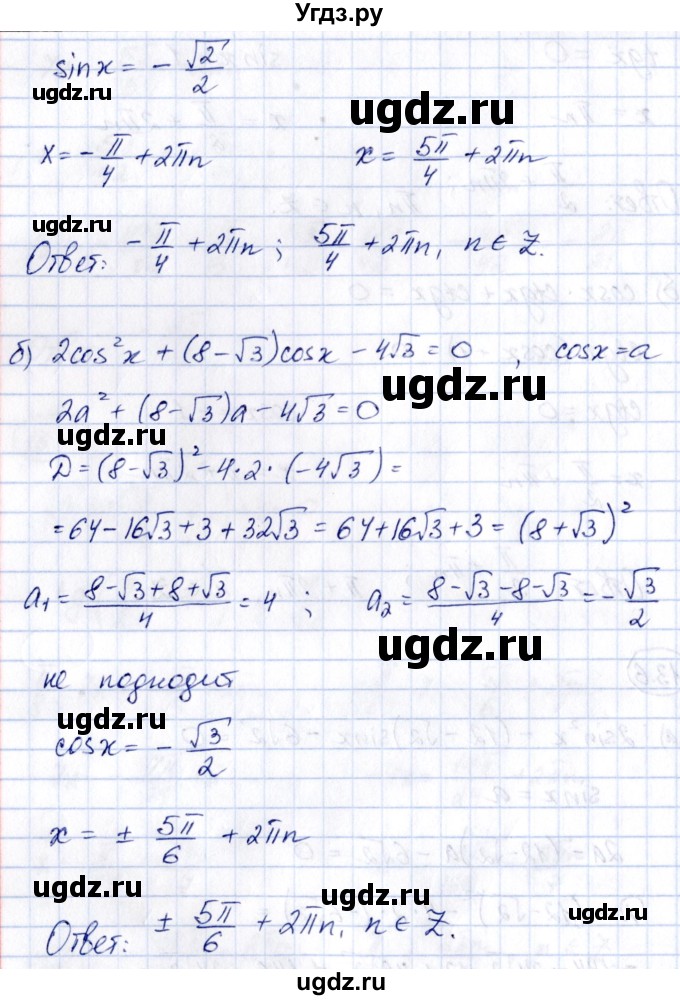 Угдз.ру
sinx = - √2/2
ugdz.ru ugdz.ru
x = - π/4 + 2πn x = 5π/4 + 2πn
ugdz.ru
Ответ: - π/4 + 2πn ; 5π/4 + 2πn, n ∈ Z.
ugdz.ru
б) 2cos²x + (8-√3)cosx - 4√3 = 0 , cosx = a
ugdz.ru
2a² + (8-√3)a - 4√3 = 0
ugdz.ru
Д = (8-√3)² - 4·2·(-4√3) =
ugdz.ru
= 64 - 16√3 + 3 + 32√3 = 64 + 16√3 + 3 = (8+√3)²
ugdz.ru
a₁ = (8-√3+8+√3)/4 = 4 ; a₂ = (8-√3-8-√3)/4 = - √3/2
ugdz.ru
не подходит
ugdz.ru
cosx = - √3/2
ugdz.ru
x = ± 5π/6 + 2πn
ugdz.ru ugdz.ru
Ответ: ± 5π/6 + 2πn, n ∈ Z.
ugdz.ru